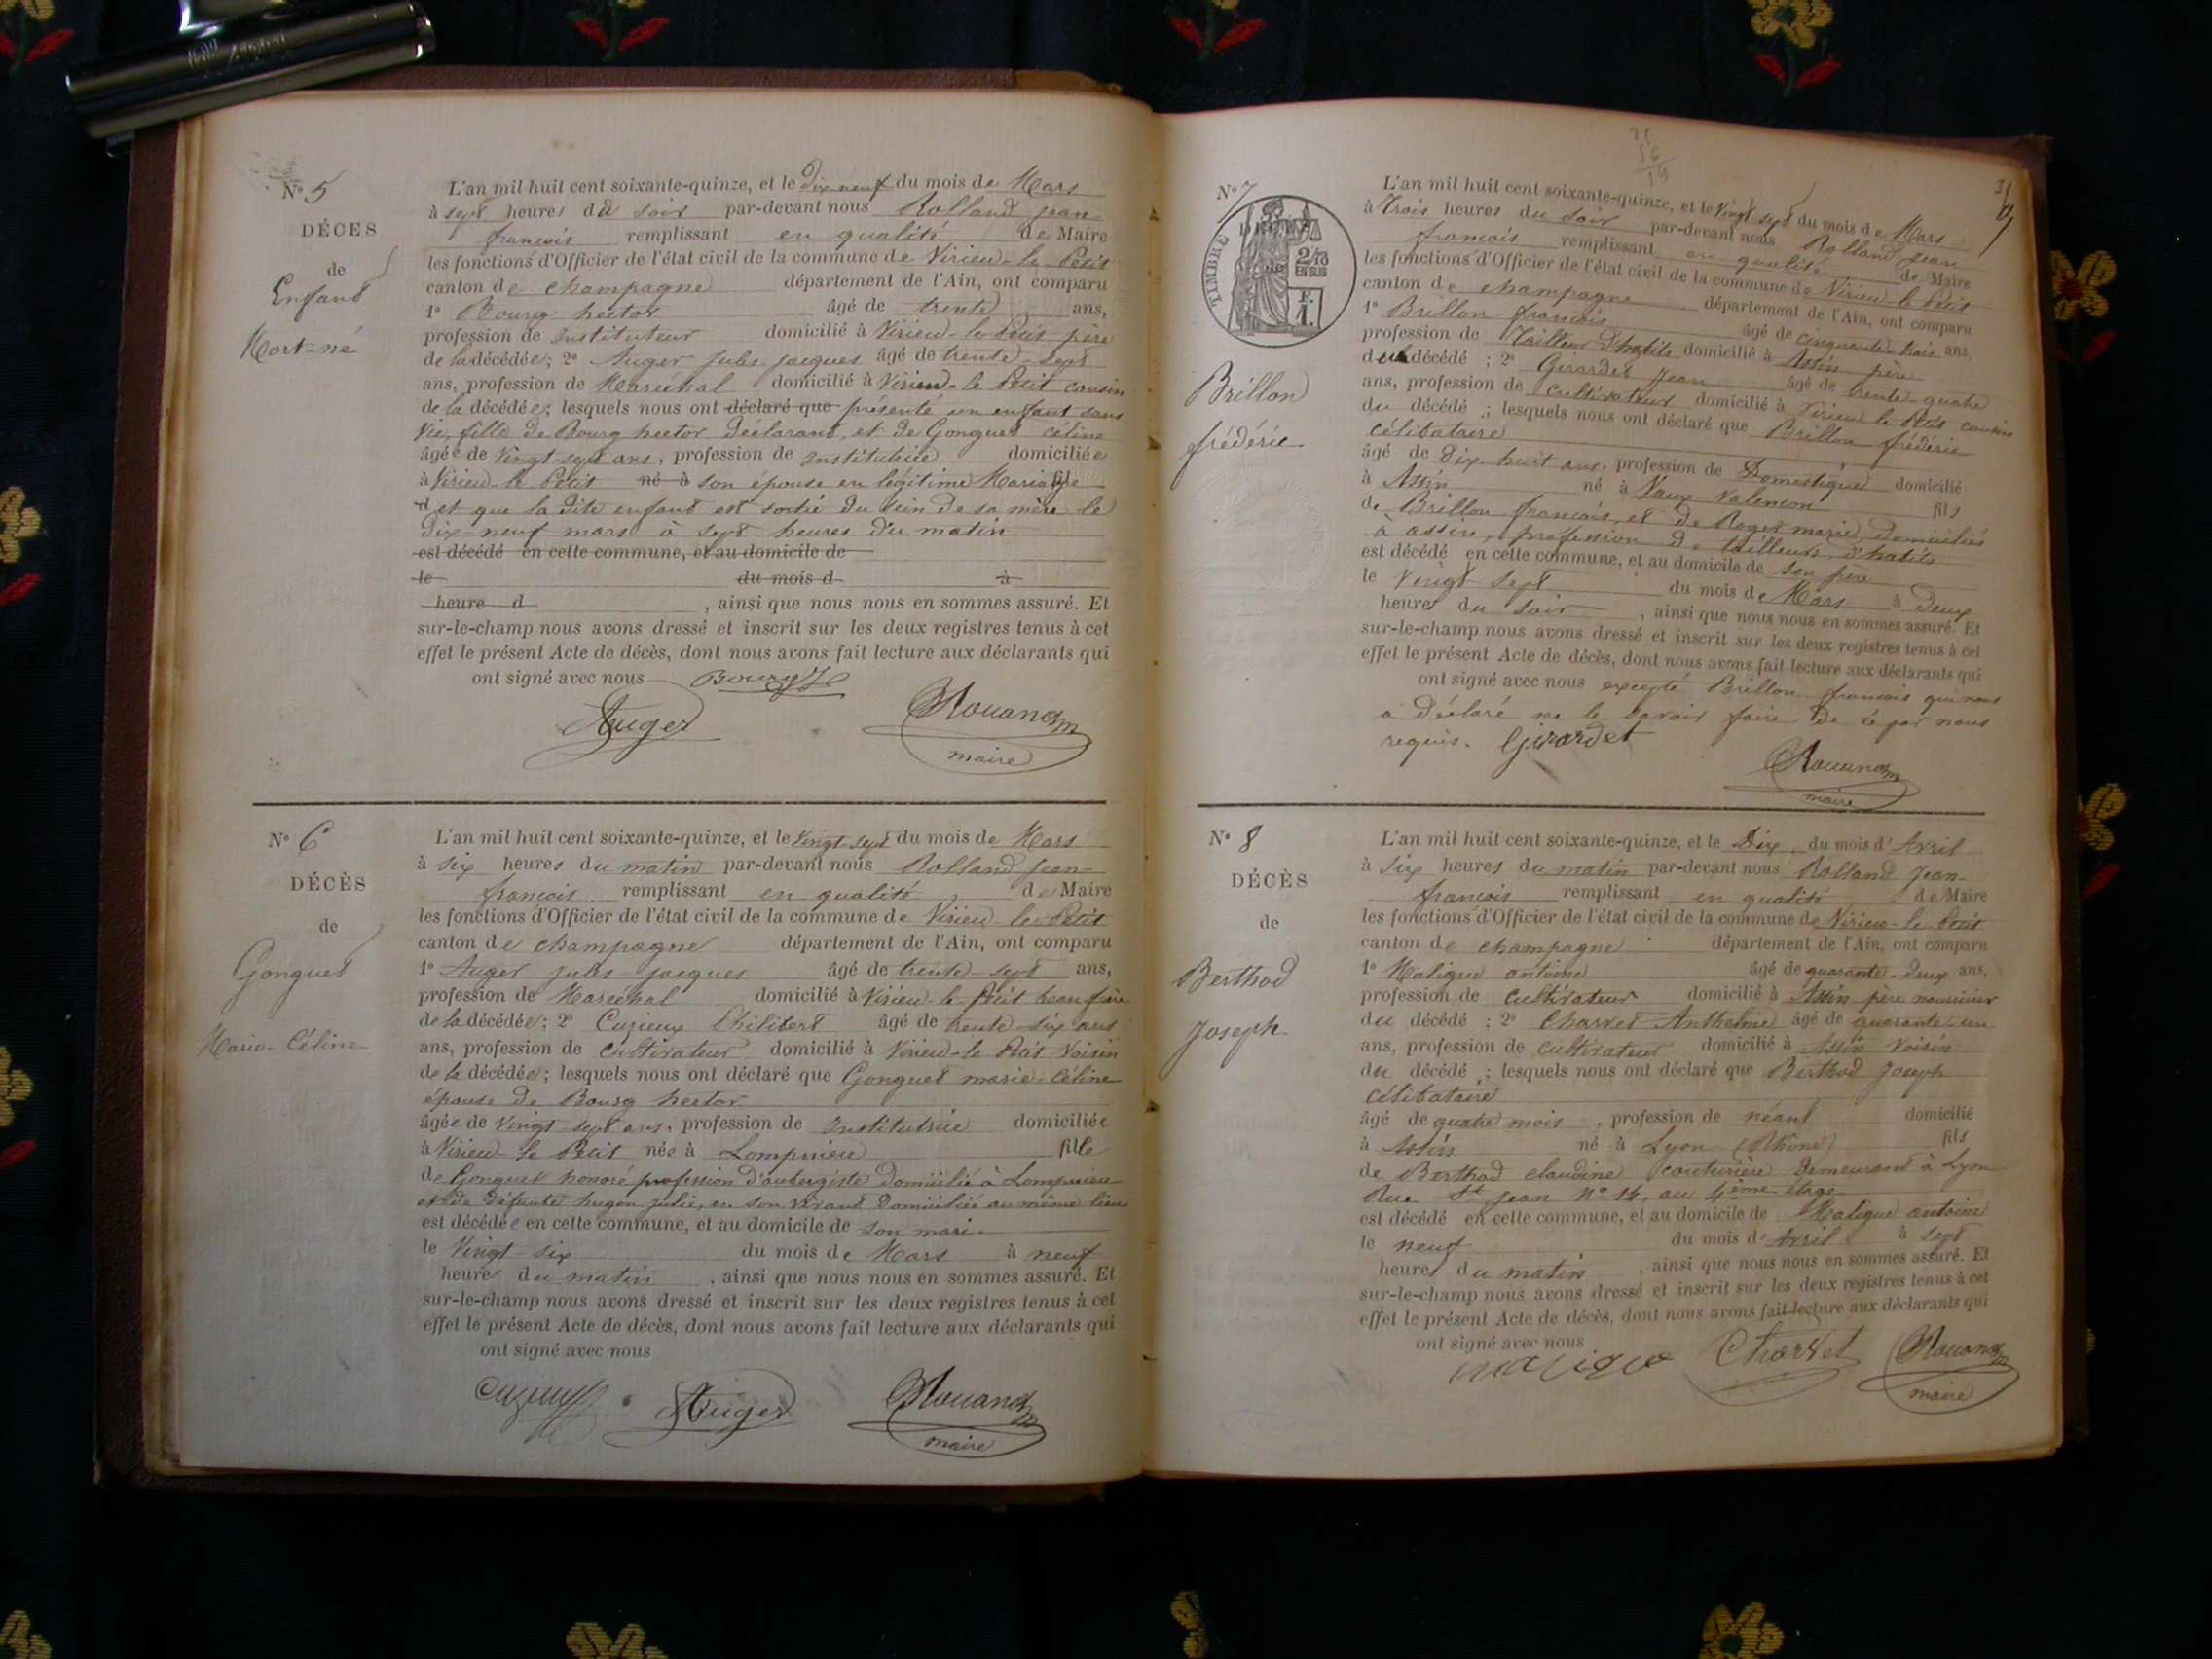 N° 5
DÉCES
de
Enfant
Mort-né
L'an mil huit cent soixante-quinze, et le Dix neuf du mois de Mars
à sept heures du soir par-devant nous Rolland jean-
francois remplissant en qualité de Maire
les fonctions d'Officier de l'état civil de la commune de Virieu-le Petit
canton de champagne département de l'Ain, ont comparu
1° Bourg hector âgé de trente ans,
profession de Instituteur domicilié à Virieu-le Petit père
de la décédée; 2° Auger jules jacques âgé de trente-sept
ans, profession de Marechal domicilié à Virieu-le Petit cousin
de la décédée; lesquels nous ont déclaré que présenté un enfant sans
vie, fille de Bourg hector Déclarant, et de Gonguet céline
âgée de Vingt-sept ans, profession de Institutrice domiciliée
à Virieu-le Petit né à son épouse en légitime Mariage
et que la dite enfant est sortie du sein de sa mère le
Dix-neuf mars à sept heures du matin
est décédé en cette commune, et au domicile de
le du mois d à
heure d , ainsi que nous nous en sommes assuré. Et
sur-le-champ nous avons dressé et inscrit sur les deux registres tenus à cet
effet le présent Acte de décès, dont nous avons fait lecture aux déclarants qui
ont signé avec nous Bourg
Auger
maire
N° 6
DÉCÈS
de
Gonguet
Marie-Céline
L'an mil huit cent soixante-quinze, et le Vingt-sept du mois de Mars
à six heures du matin par-devant nous Rolland jean-
francois remplissant en qualité de Maire
les fonctions d'Officier de l'état civil de la commune de Virieu-le Petit
canton de champagne département de l'Ain, ont comparu
1° Auger jules-jacques âgé de trente-sept ans,
profession de Maréchal domicilié à Virieu-le-Petit beau frère
de la décédée; 2° Cuzieux Philibert âgé de trente-six ans
ans, profession de cultivateur domicilié à Virieu-le Petit Voisin
de la décédée; lesquels nous ont déclaré que Gonguet marie-céline
épouse de Bourg hector
âgée de Vingt sept ans, profession de Institutrice domiciliée
à Virieu-le Petit née à Lompnieu fille
de Gonguet honoré profession d'aubergiste Domicilié à Lompnieu
et de Défunte hugon julie, en son vivant Domiciliée au même lieu
est décédée en cette commune, et au domicile de son mari
le Vingt-six du mois de Mars à neuf
heures du matin , ainsi que nous nous en sommes assuré. Et
sur-le-champ nous avons dressé et inscrit sur les deux registres tenus à cet
effet le présent Acte de décès, dont nous avons fait lecture aux déclarants qui
ont signé avec nous
Auger
maire
N° 7
TIMBRE
2/10
EN SUS
F.
1.
Brillon
frédéric
L'an mil huit cent soixante-quinze, et le Vingt sept du mois de Mars
à Trois heures du soir par-devant nous Rolland jean
francois remplissant en qualité de Maire
les fonctions d'Officier de l'état civil de la commune de Virieu le Petit
canton de champagne département de l'Ain, ont comparu
1° Brillon francois âgé de cinquante-trois ans,
profession de Tailleur d'habits domicilié à Assin père
du décédé ; 2° Girardet Jean âgé de trente-quatre
ans, profession de cultivateur domicilié à Virieu le Petit cousin
du décédé ; lesquels nous ont déclaré que Brillon frédéric
célibataire
âgé de Dix huit ans, profession de Domestique domicilié
à Assin né à Vaux-Valencon fils
de Brillon francois et de Roger marie Domiciliés
à assin, profession de tailleurs d'habits
est décédé en cette commune, et au domicile de son père
le Vingt sept du mois de Mars à Deux
heures du soir , ainsi que nous nous en sommes assuré. Et
sur-le-champ nous avons dressé et inscrit sur les deux registres tenus à cet
effet le présent Acte de décès, dont nous avons fait lecture aux déclarants qui
ont signé avec nous excepté Brillon francois qui nous
a Déclaré ne le savoir faire de ce par nous
requis. Girardet
maire
N° 8
DÉCÈS
de
Berthod
Joseph
L'an mil huit cent soixante-quinze, et le Dix du mois d'Avril
à six heures du matin par-devant nous Rolland Jean-
francois remplissant en qualité de Maire
les fonctions d'Officier de l'état civil de la commune de Virieu-le Petit
canton de champagne département de l'Ain, ont comparu
1° Maligue antoine âgé de quarante-deux ans,
profession de cultivateur domicilié à Assin père nourricier
du décédé ; 2° Charvet Anthelme âgé de quarante-un
ans, profession de cultivateur domicilié à Assin Voisin
du décédé ; lesquels nous ont déclaré que Berthod Joseph
célibataire
âgé de quatre mois , profession de néant domicilié
à Assin né à Lyon (Rhône) fils
de Berthod claudine couturière Demeurant à Lyon
Rue St jean n° 14, au 4ème étage
est décédé en cette commune, et au domicile de Maligue antoine
le neuf du mois d'Avril à sept
heures du matin , ainsi que nous nous en sommes assuré. Et
sur-le-champ nous avons dressé et inscrit sur les deux registres tenus à cet
effet le présent Acte de décès, dont nous avons fait lecture aux déclarants qui
ont signé avec nous
Charvet
maire